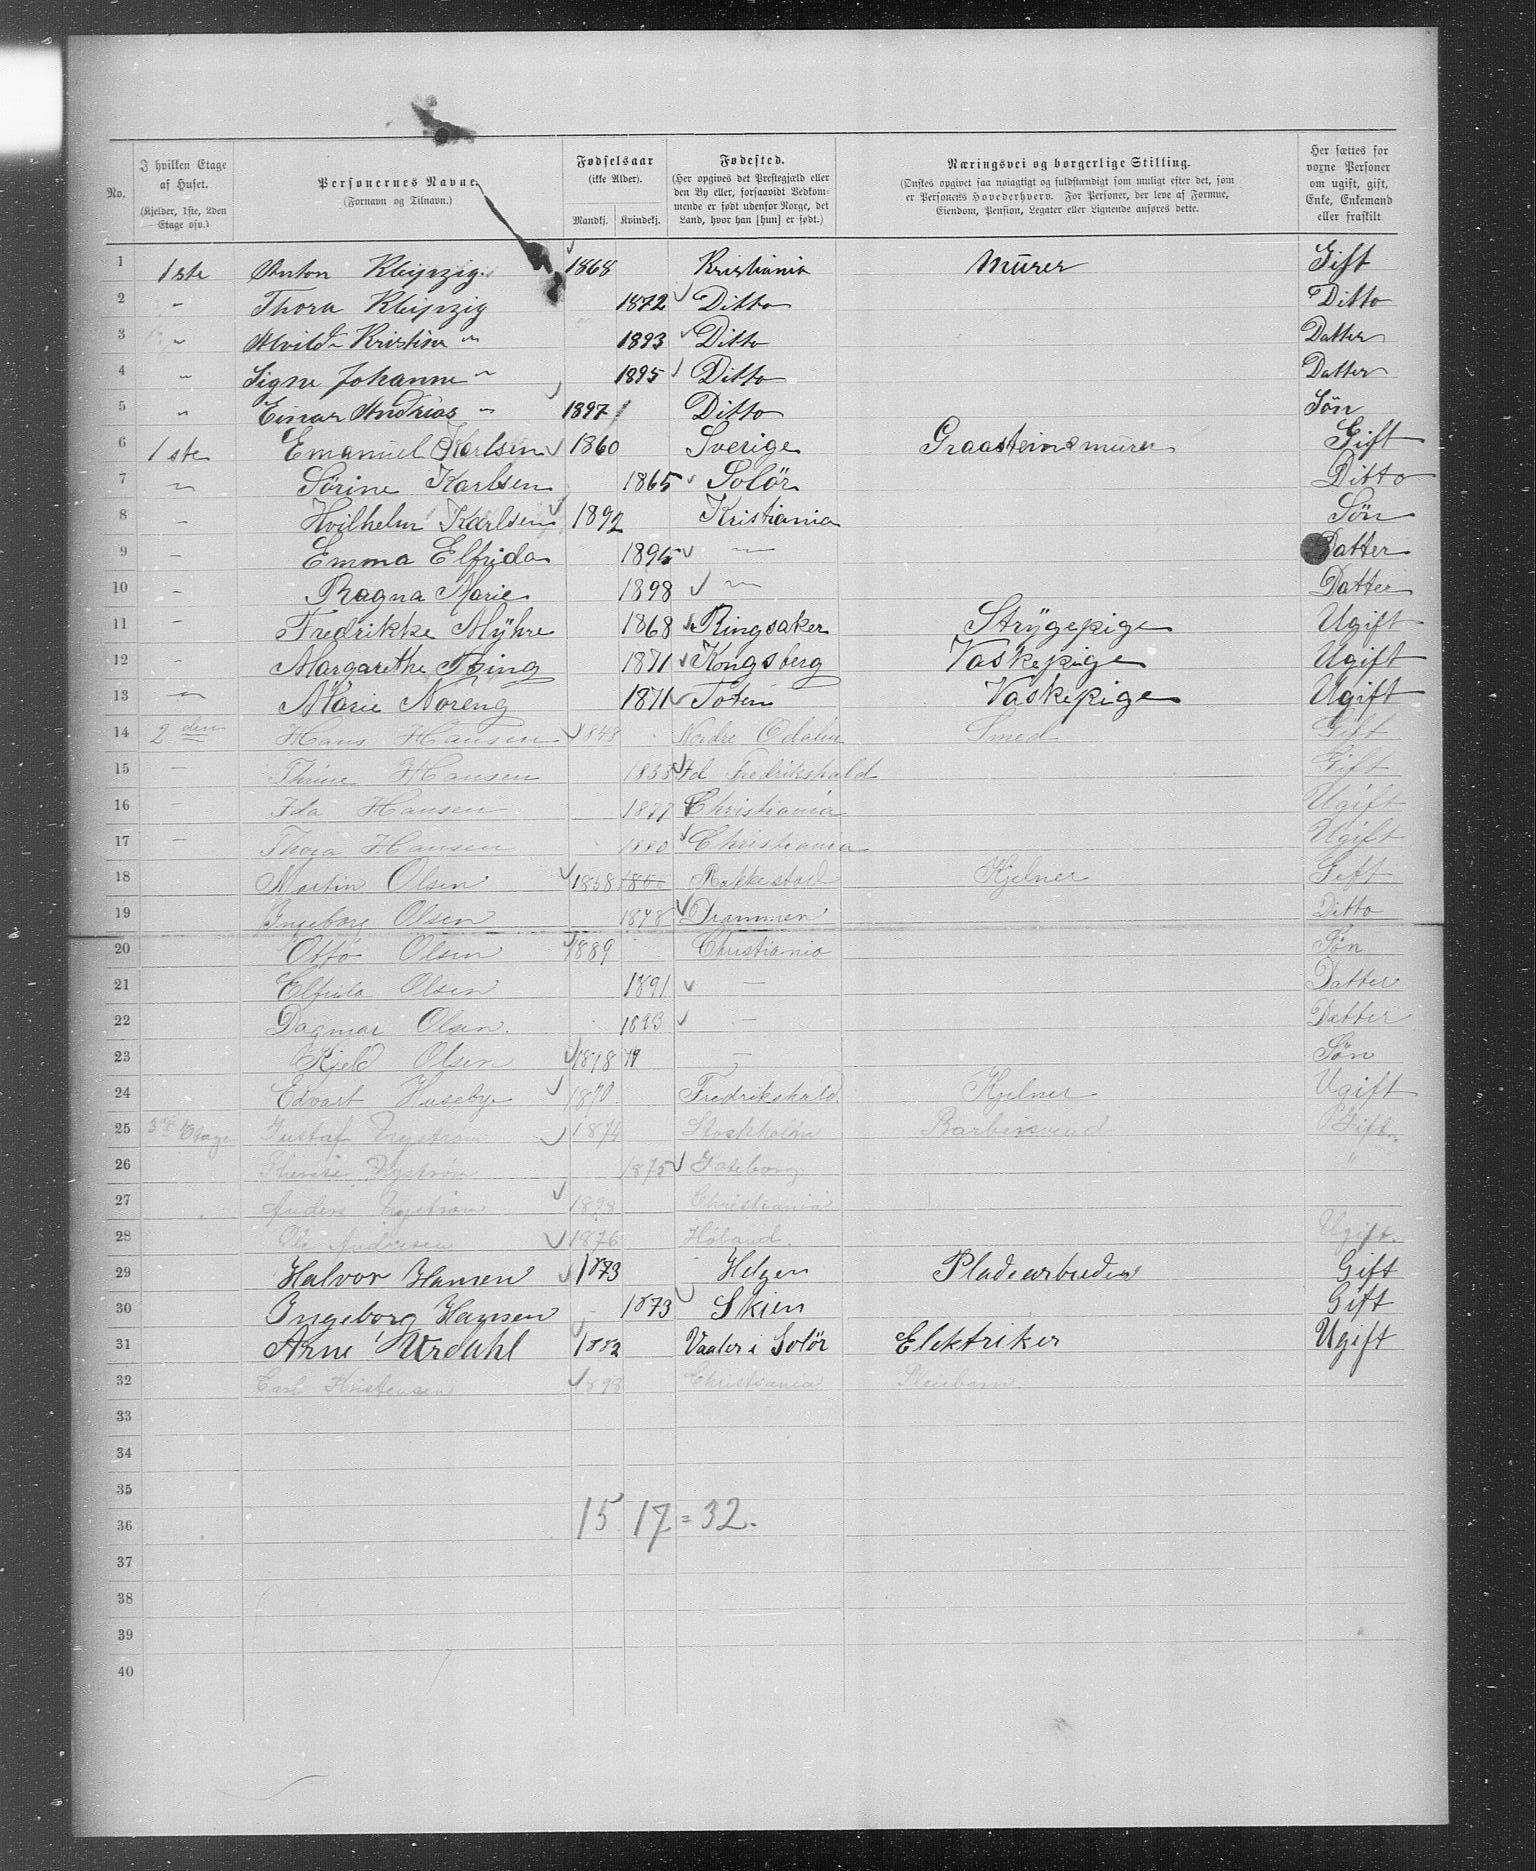 No.
I hvilken Etage af Huset. (Kjelder, 1ste, 2den Etage osv.)
Personernes Navne. (Fornavn og Tilnavn.)
Fødselsaar (ikke Alder). Mandkj. Kvindekj.
Fødested. (Her opgives det Præstegjæld eller den By eller, forsaavidt Vedkommende er født udenfor Norge, det Land, hvor han [hun] er født.)
Næringsvei og borgerlige Stilling. (Ønskes opgivet saa nøiagtigt og fuldstændigt som muligt efter det, som er Personens Hovederhverv. For Personer, der leve af Formue, Eiendom, Pension, Legater eller Lignende anføres dette.
Her sættes for voxne Personer om ugift, gift, Enke, Enkemand eller fraskilt
1 1ste Anton Kleipzig 1868 Kristiania Mürer Gift
2 " Thora Kleipzig 1872 Ditto Ditto
3 " Alvilde Kristine " 1893 Ditto Datter
4 " Signe Johanne " 1895 Ditto Datter
5 " Einar Andrias " 1897 Ditto Søn
6 1ste Emanuel Karlsen 1860 Sverige Graasteinsmürer Gift
7 " Sørine Karlsen 1865 Solör Ditto
8 " Hvilhelm Karlsen 1892 Kristiania Søn
9 " Emma Elfrida 1895 " Datter
10 " Ragna Marie 1898 " Datter
11 " Fredrikke Mÿhre 1868 Ringsaker Strÿgepige Ugift
12 " Margarethe 1871 Kongsberg Vaskepige Ugift
13 " Marie Noreng 1871 Toten Vaskepige Ugift
14 2den Hans Hansen 1848 Nordre Odalen Smed Gift
15 " Thrine Hansen 1853 Id Fredrikshald Gift
16 " Ida Hansen 1877 Christiania Ugift
17 " Thora Hansen 1880 Christiania Ugift
18 Martin Olsen 1858 Rakkestad Kjelner Gift
19 Ingeborg Olsen 1878 Drammen Ditto
20 Otto Olsen 1889 Christiania Søn
21 Elfrida Olsen 1891 — Datter
22 Dagmar Olsen. 1893 — Datter
23 Kjeld Olsen 1898 — Søn
24 Edvart Huseby 1870 Fredrikshald. Kjelner Ugift
25 3die Etage Gustaf Nystrøm 1874 Stockholm Barbersvend Gift
26 Nystrøm 1875 Gøteborg "
27 Anders Nystrøm 1898 Christiania
28 Ole Andresen 1876 Høland. Ugift.
29 Halvor Hansen 1873 Helgen Pladearbeider Gift
30 Ingeborg Hansen 1873 Skien Gift
31 Arne Urdahl 1882 Vaaler i Solör Elektriker Ugift
32 Carl Kristensen 1898 Christiania Pleiebarn.
33
34
35
36 15 17 = 32.
37
38
39
40